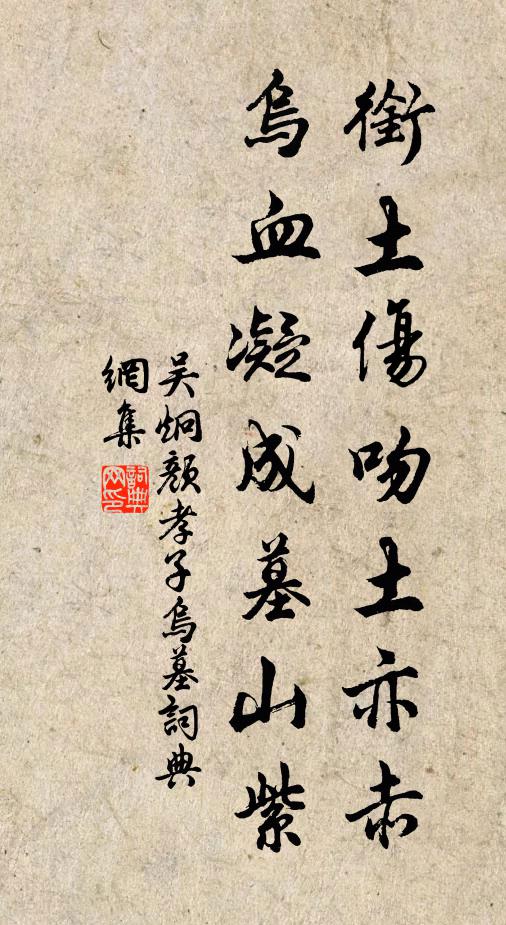 銜土傷吻土亦赤
烏血凝成墓山紫
吴炯顔孝子烏墓詞典
網集
詞典網印